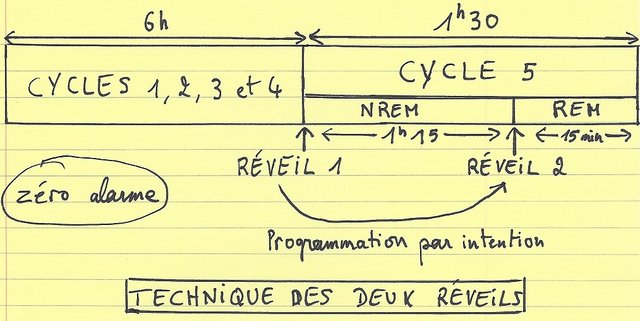 6h 1h30
CYCLES 1, 2, 3 et 4
CYCLE 5
NREM REM
1h15 15 min
RÉVEIL 1 RÉVEIL 2
zéro alarme
Programmation par intention
TECHNIQUE DES DEUX RÉVEILS